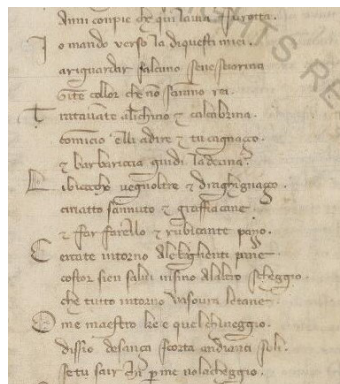 Anni conpie che qui la uia fu rotta.
Io mando uerso la di questi miei.
a riguardar salcuno sene sciorina
Gite collor che nō sarāno rei.
Trateuāte alichino & calcabrina.
comīcio elli a dire & tu cagnaço.
& barbariccia guidi la decina.
Libicocho uegnoltre & draghignaço.
ciriatto sannuto & graffiacane.
& farfarello & rubicante paço.
Cercate intorno le
costor sien salui insino alaltro scheggio.
che tutto intorno ua soura le tane.
Ome maestro ke e quel chi ueggio.
diss'io de sança scorta andianci soli.
se tu sair p me nola cheggio.
RIGHTS RE